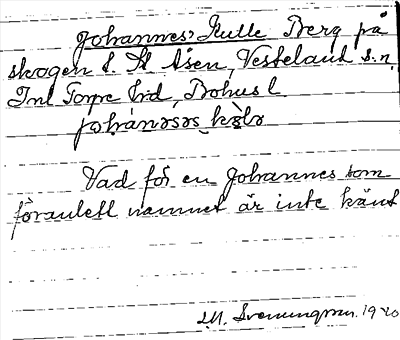 Johannes' Kulle Berg på
skogen t. St Åsen, Vesteland s.n.
Inl Torpe hd, Bohusl
johanəsəs kølə
Vad för en Johannes som
föranlett namnet är inte känt
1920